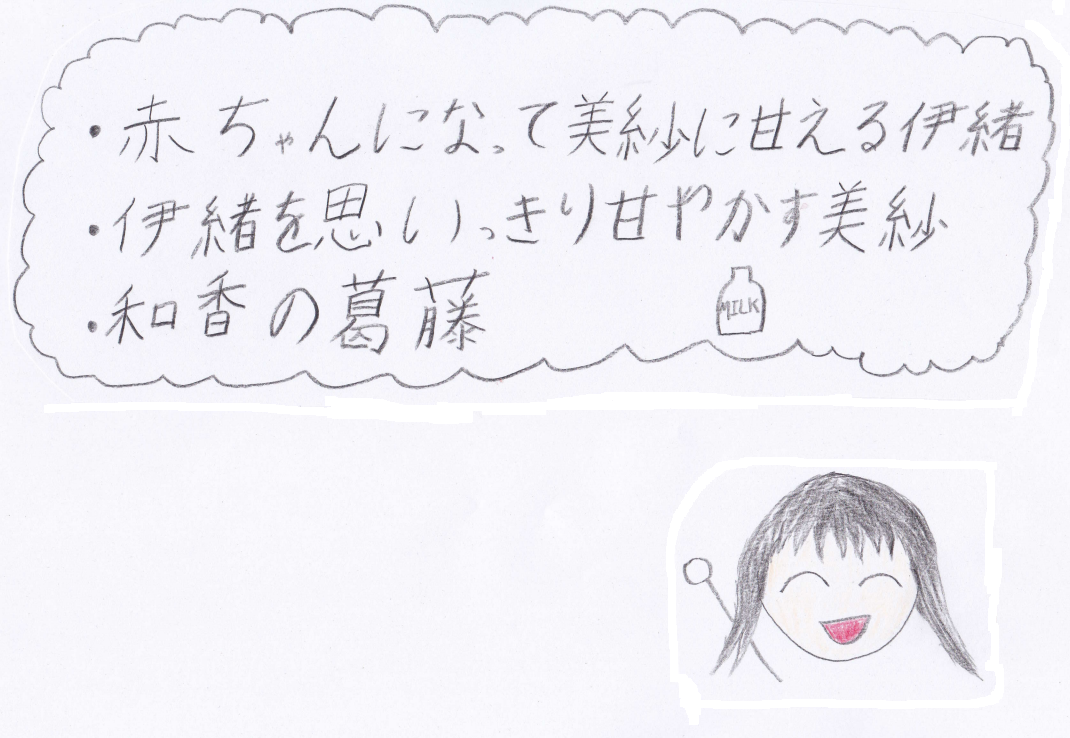 ・赤ちゃんになって美紗に甘える伊緒
・伊緒を思いっきり甘やかす美紗
・和香の葛藤
MILK